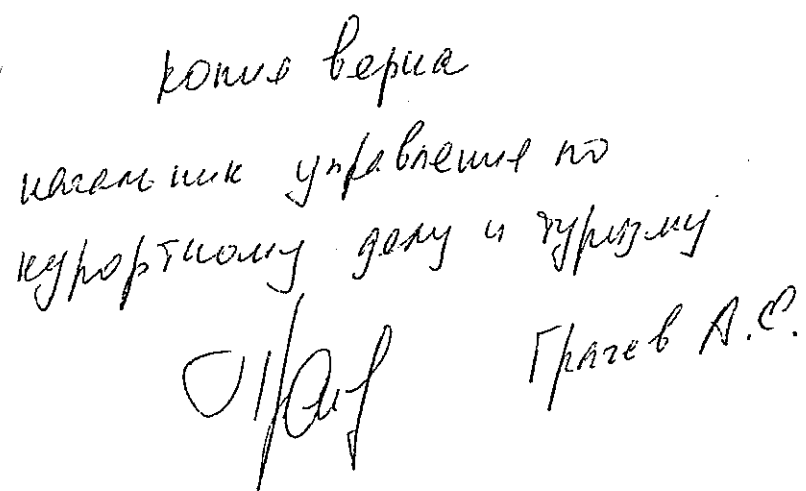 копия верна
начальник управления по
курортному делу и туризму
Грачев А.С.